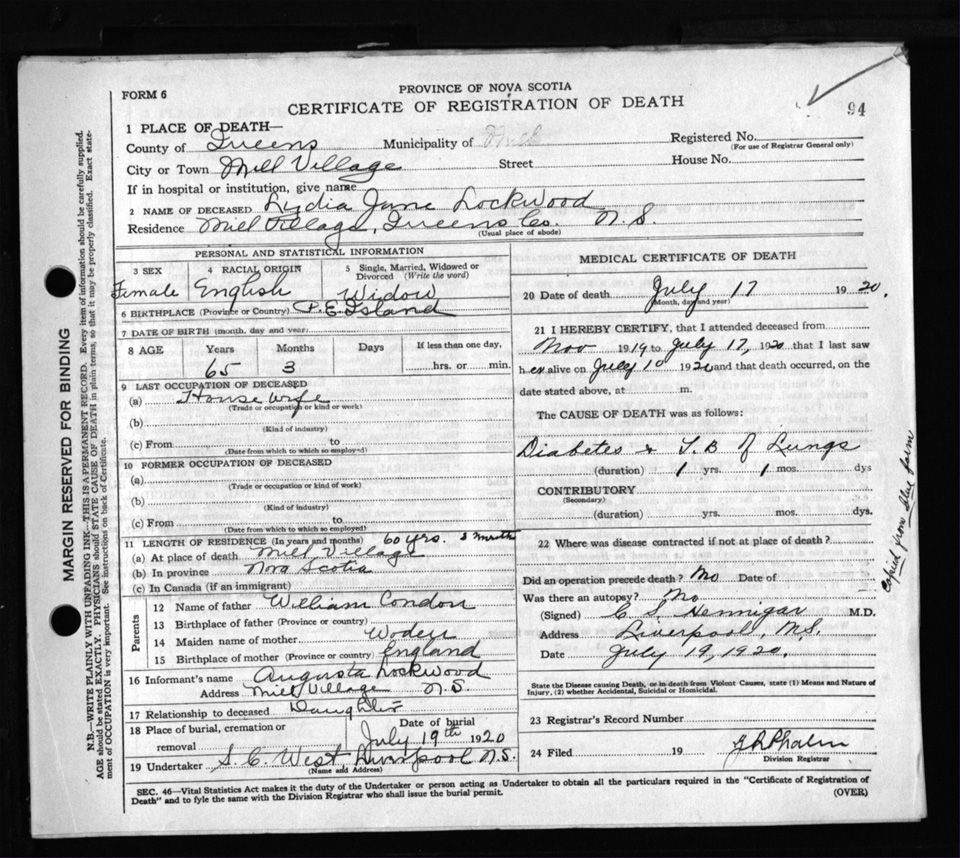 PROVINCE OF NOVA SCOTIA
FORM 6
CERTIFICATE OF REGISTRATION OF DEATH
94
1 PLACE OF DEATH—
County of Queens Municipality of Registered No.
(For use of Registrar General only)
City or Town Mill Village Street House No.
If in hospital or institution, give name
2 NAME OF DECEASED Lydia Jane Lockwood
Residence Mill Village, Queens Co. N.S.
(Usual place of abode)
PERSONAL AND STATISTICAL INFORMATION
3 SEX 4 RACIAL ORIGIN 5 Single, Married, Widowed or Divorced (Write the word)
Female English Widow
6 BIRTHPLACE (Province or Country) P.E. Island
7 DATE OF BIRTH (month, day and year)
8 AGE Years Months Days If less than one day,
65 3 hrs. or min.
9 LAST OCCUPATION OF DECEASED
(a) Housewife
(Trade or occupation or kind or work)
(b)
(Kind of industry)
(c) From to
(Date from which to which so employed)
10 FORMER OCCUPATION OF DECEASED
(a)
(Trade or occupation or kind or work)
(b)
(Kind of industry)
(c) From to
(Date from which to which so employed)
11 LENGTH OF RESIDENCE (In years and months) 60 yrs. 3 month
(a) At place of death Mill Village
(b) In province Nova Scotia
(c) In Canada (if an immigrant)
Parents
12 Name of father William Condon
13 Birthplace of father (Province or country)
14 Maiden name of mother Woden
15 Birthplace of mother (Province or country) England
16 Informant's name Augusta Lockwood
Address Mill Village N.S.
17 Relationship to deceased Daughter
18 Place of burial, cremation or removal Date of burial
July 19th 1920
19 Undertaker S. C. West, Liverpool N.S.
(Name and Address)
MEDICAL CERTIFICATE OF DEATH
20 Date of death July 17 1920.
(Month, day and year)
21 I HEREBY CERTIFY, that I attended deceased from
Nov 1919 to July 17, 1920 that I last saw
her alive on July 10 1920 and that death occurred, on the
date stated above, at m.
The CAUSE OF DEATH was as follows:
Diabetes & T.B of Lungs
(duration) 1 yrs. 1 mos. dys
CONTRIBUTORY
(Secondary)
(duration) yrs. mos. dys.
22 Where was disease contracted if not at place of death?
Did an operation precede death? No Date of
Was there an autopsy? No
(Signed) C. S. Hennigar M.D.
Address Liverpool, N.S.
Date July 19, 1920.
State the Disease causing Death, or in death from Violent Causes, state (1) Means and Nature of
Injury, (2) whether Accidental, Suicidal or Homicidal.
23 Registrar's Record Number
24 Filed 19
Division Registrar
SEC. 46—Vital Statistics Act makes it the duty of the Undertaker or person acting as Undertaker to obtain all the particulars required in the "Certificate of Registration of
Death" and to fyle the same with the Division Registrar who shall issue the burial permit.
(OVER)
MARGIN RESERVED FOR BINDING
N.B.—WRITE PLAINLY WITH UNFADING INK—THIS IS A PERMANENT RECORD. Every item of information should be carefully supplied.
AGE should be stated EXACTLY. PHYSICIANS should STATE CAUSE OF DEATH in plain terms, so that it may be properly classified. Exact state-
ment of OCCUPATION is very important. See instructions on back of Certificate.
Copied from blue form